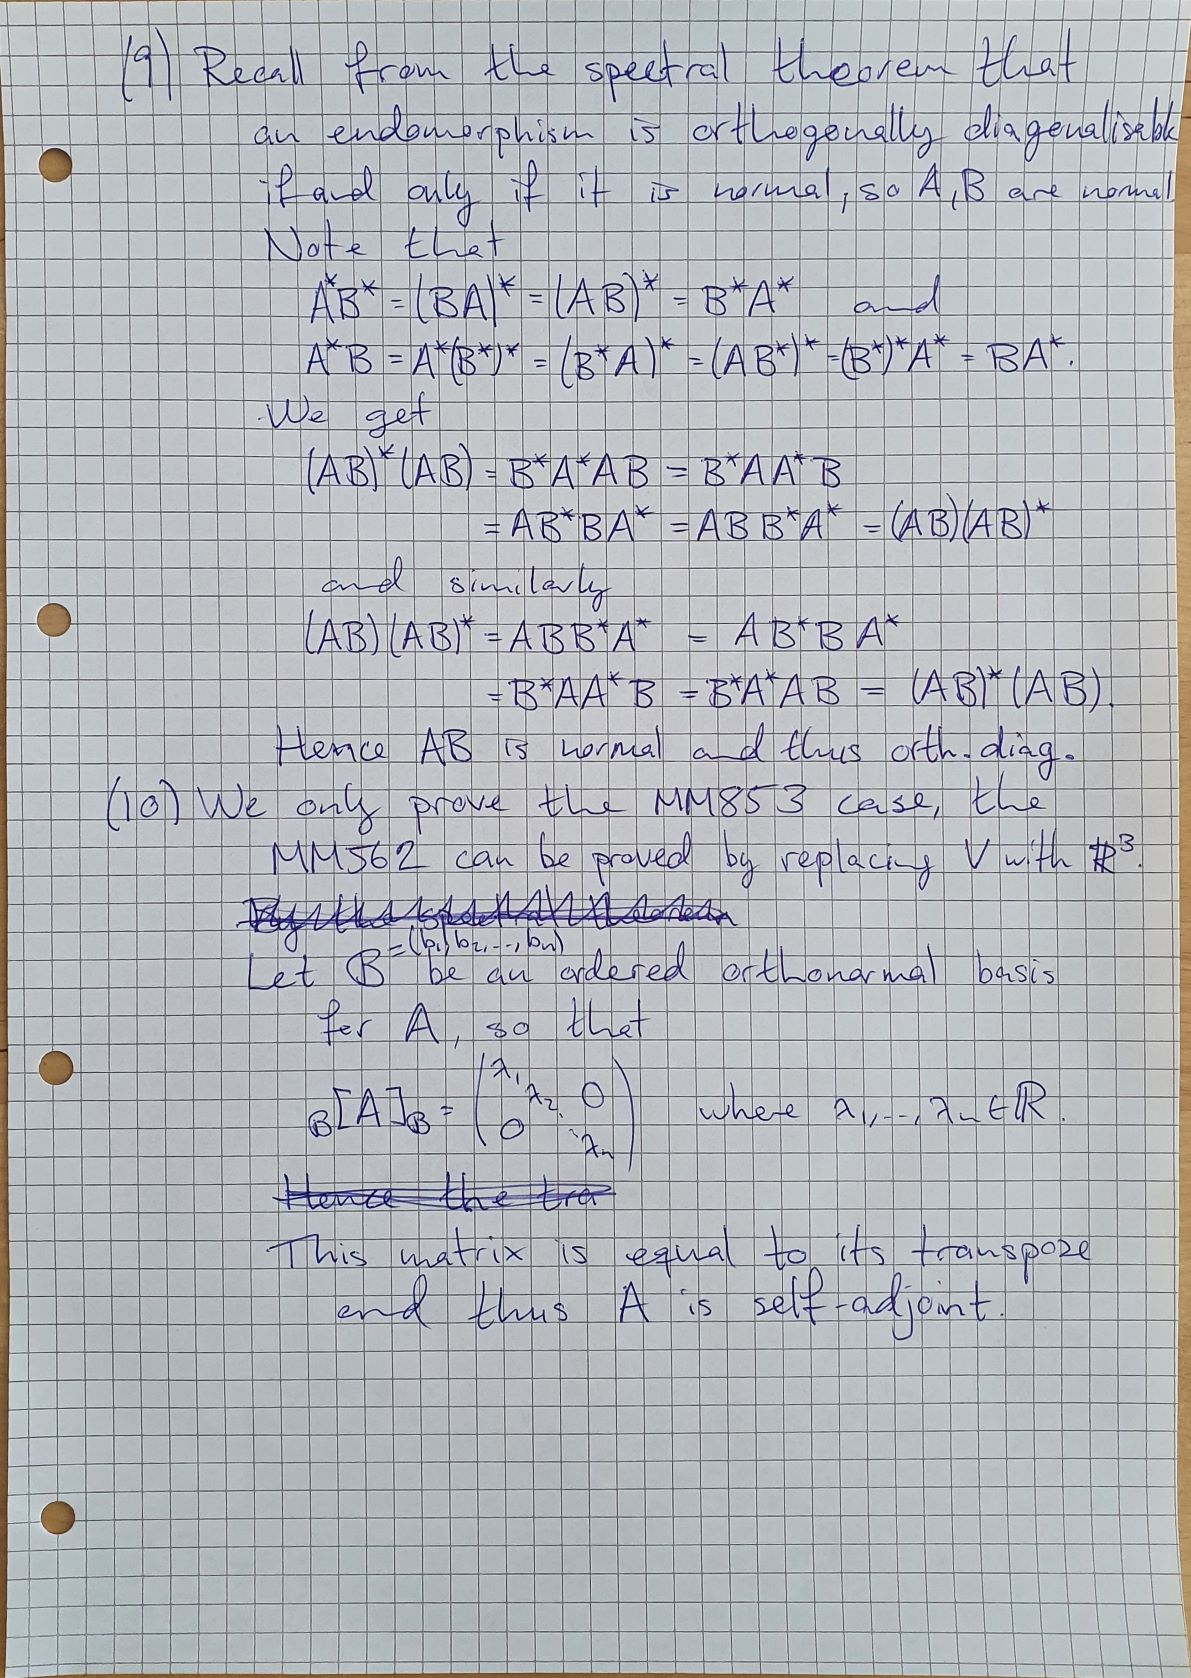 (9) Recall from the spectral theorem that
an endomorphism is orthogonally diagonalisable
if and only if it is normal, so A, B are normal
Note that
A*B* = (BA)* = (AB)* = B*A* and
A*B = A*(B*)* = (B*A)* = (AB*)* = (B*)*A* = BA*.
We get
(AB)*(AB) = B*A*AB = B*AA*B
= AB*BA* = ABB*A* = (AB)(AB)*
and similarly
(AB)(AB)* = ABB*A* = AB*BA*
= B*AA*B = B*A*AB = (AB)*(AB).
Hence AB is normal and thus orth. diag.
(10) We only prove the MM853 case, the
MM562 can be proved by replacing V with ℝ³.
By the spectral theorem
Let B = (b₁, b₂, ..., bₙ) be an ordered orthonormal basis
for A, so that
B[A]B = (λ₁ λ₂ 0 0 ⋱ λₙ) where λ₁, ..., λₙ ∈ ℝ.
Hence the tra
This matrix is equal to its transpose
and thus A is self-adjoint.